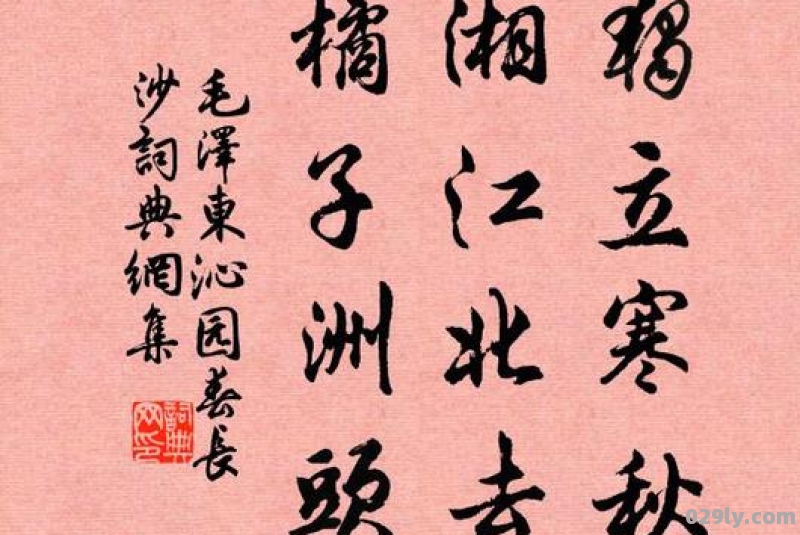 獨立寒秋
湘江北去
橘子洲頭
毛澤東沁园春長
沙詞典網集
詞典网印
029ly.com